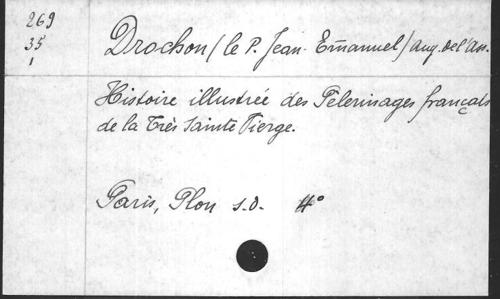 269
35
1
Drochon / (le P. Jean-Emmanuel) / Aug. de l'Ass.
Histoire illustrée des Pelerinages français
de la Très Sainte Vierge.
Paris, Plon s.d. 4°